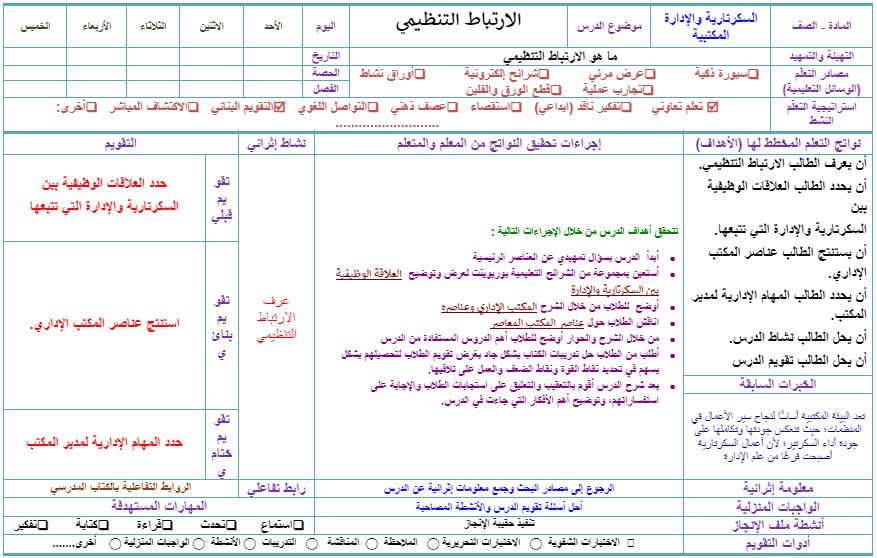 المادة - الصف
السكرتارية والإدارة المكتبية
موضوع الدرس
الارتباط التنظيمي
اليوم
الأحد
الاثنين
الثلاثاء
الأربعاء
الخميس
التهيئة والتمهيد
ما هو الارتباط التنظيمي
التاريخ
مصادر التعلّم
(الوسائل التعليمية)
سبورة ذكية
عرض مرئي
شرائح إلكترونية
أوراق نشاط
تجارب عملية
قطع الورق والفلين
الحصة
الفصل
استراتيجية التعلّم
النشط
تعلم تعاوني
تفكير ناقد (ابداعي)
استقصاء
عصف ذهني
التواصل اللغوي
التقويم البنائي
الاكتشاف المباشر
أخرى:
............................
نواتج التعلم المخطط لها (الأهداف)
إجراءات تحقيق النواتج من المعلم والمتعلم
نشاط إثرائي
التقويم
أن يعرف الطالب الارتباط التنظيمي.
أن يحدد الطالب العلاقات الوظيفية
بين
السكرتارية والإدارة التي تتبعها.
أن يستنتج الطالب عناصر المكتب
الإداري.
أن يحدد الطالب المهام الإدارية لمدير
المكتب.
أن يحل الطالب نشاط الدرس.
أن يحل الطالب تقويم الدرس
الخبرات السابقة
تعد البيئة المكتبية أساسًا لنجاح سير الأعمال في
المنظمات؛ حيث تنعكس جودتها وتكاملها على
جودة أداء السكرتير؛ لأن أعمال السكرتارية
أصبحت فرعًا من علم الإدارة
تتحقق أهداف الدرس من خلال الإجراءات التالية :
أبدأ الدرس بسؤال تمهيدي عن العناصر الرئيسية
أستعين بمجموعة من الشرائح التعليمية بوربوينت لعرض وتوضيح العلاقة الوظيفية
بين السكرتارية والإدارة
أوضح للطلاب من خلال الشرح المكتب الإداري وعناصره
اناقش الطلاب حول عناصر المكتب المعاصر
من خلال الشرح والحوار أوضح للطلاب أهم الدروس المستفادة من الدرس
أطلب من الطلاب حل تدريبات الكتاب بشكل جاد بغرض تقويم الطلاب لتحصيلهم بشكل
يسهم في تحديد نقاط القوة ونقاط الضعف والعمل على تلافيها.
بعد شرح الدرس أقوم بالتعقيب والتعليق على استجابات الطلاب والإجابة على
استفساراتهم، وتوضيح أهم الأفكار التي جاءت في الدرس.
عرف
الارتباط
التنظيمي
تقو
يم
قبلي
حدد العلاقات الوظيفية بين
السكرتارية والإدارة التي تتبعها
تقو
يم
بنائ
ي
استنتج عناصر المكتب الإداري.
تقو
يم
ختام
ي
حدد المهام الإدارية لمدير المكتب
معلومة إثرانية
الرجوع إلى مصادر البحث وجمع معلومات إثرانية عن الدرس
رابط تفاعلي
الروابط التفاعلية بالكتاب المدرسي
الواجبات المنزلية
أحل أسئلة تقويم الدرس والأنشطة المصاحبة
المهارات المستهدفة
أنشطة ملف الإنجاز
تنفيذ حقيبة الإنجاز
استماع
تحدث
قراءة
كتابة
تفكير
أدوات التقويم
الاختبارات الشفوية
الاختبارات التحريرية
الملاحظة
المناقشة
التدريبات
الأنشطة
الواجبات المنزلية
أخرى.......